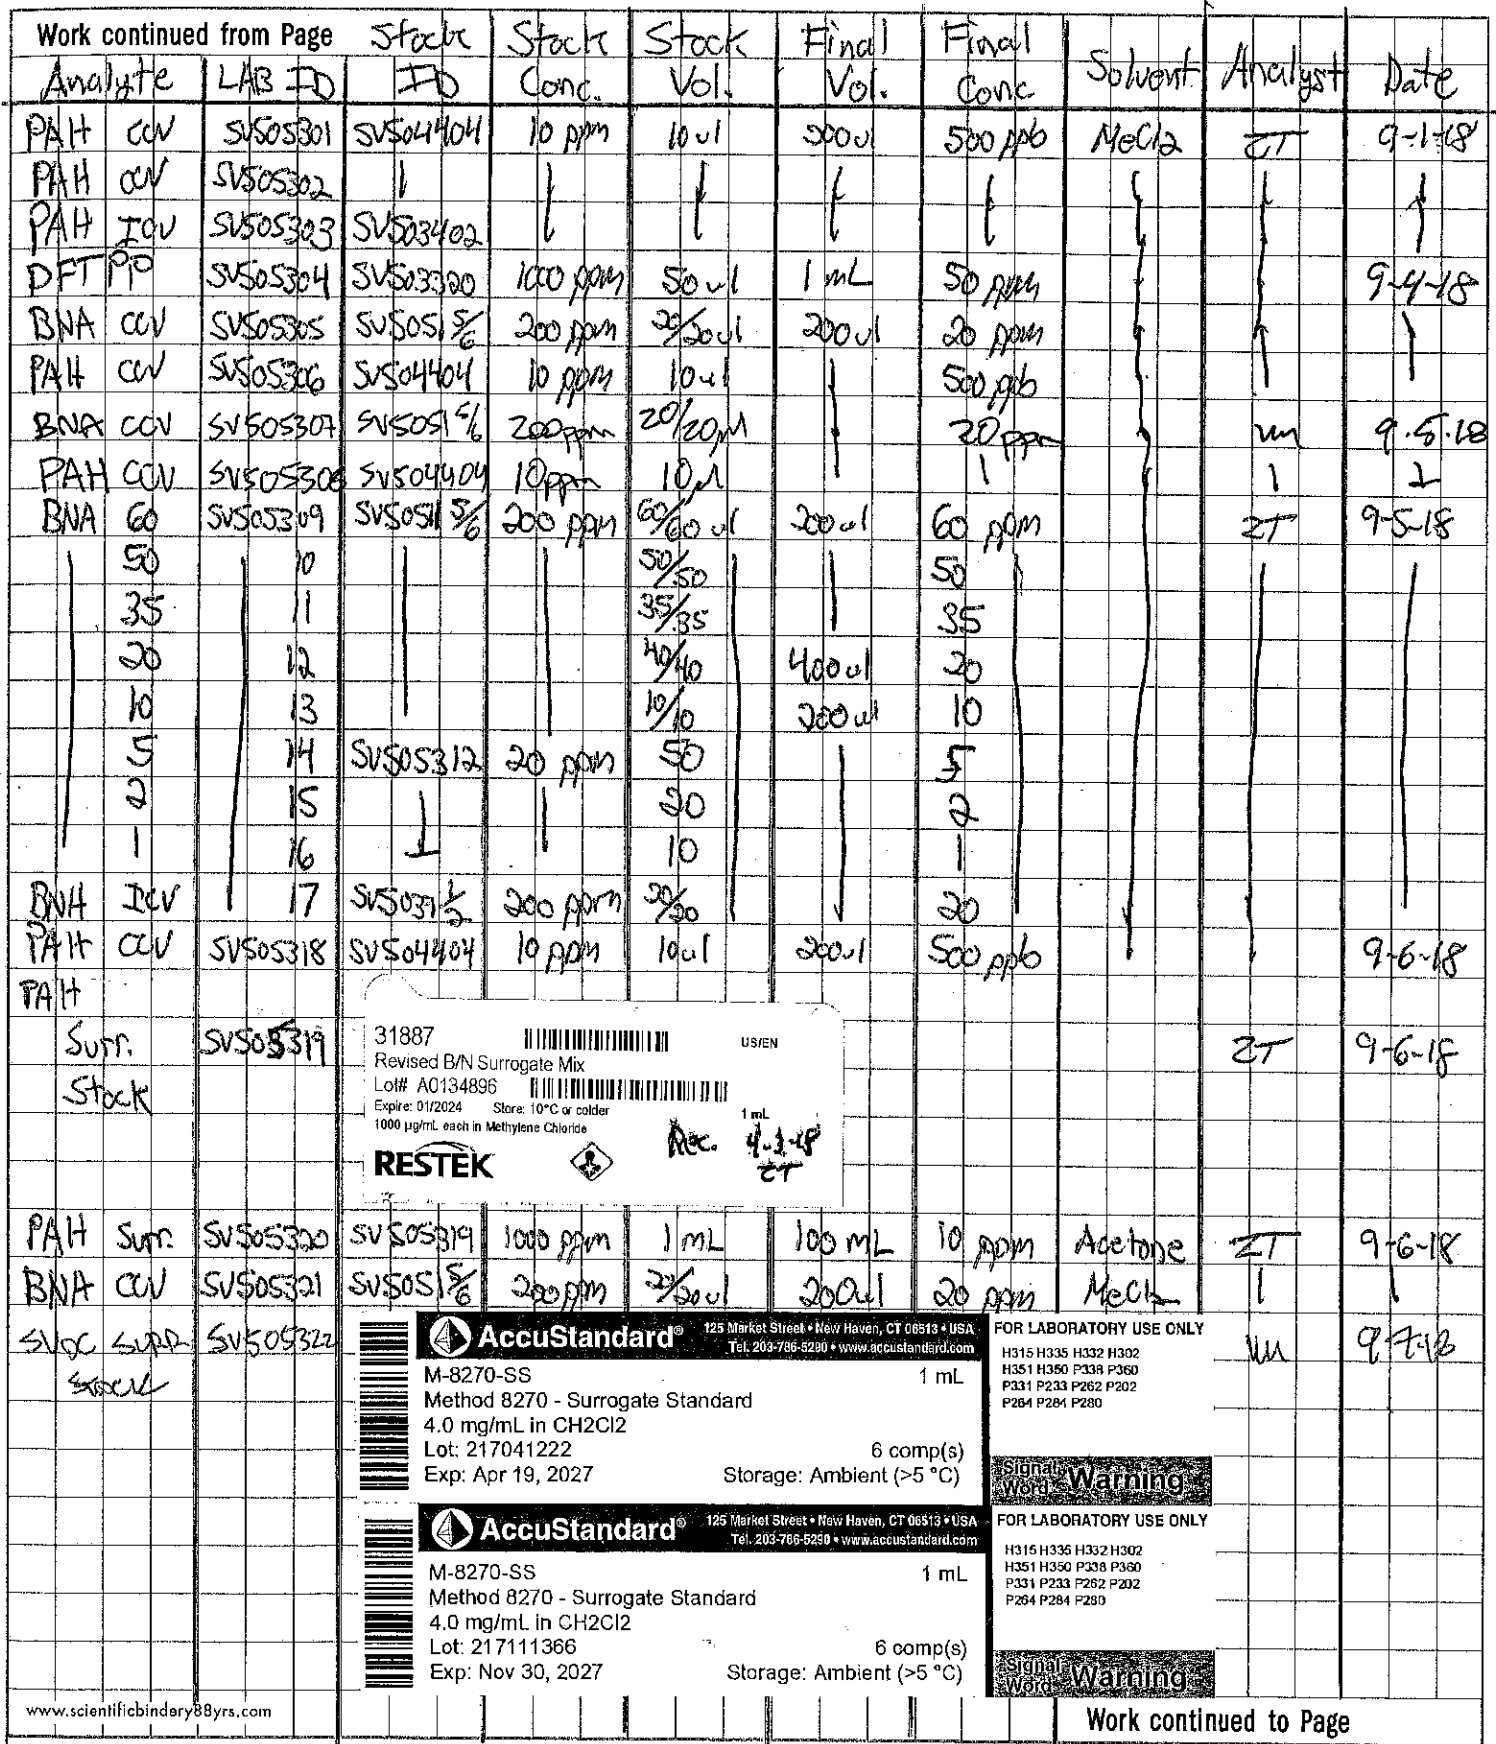 Work continued from Page Stock Stock Stock Final Final
Analyte LAB ID ID Conc. Vol. Vol. Conc Solvent Analyst Date
PAH CCV SV505301 SV504404 10 ppm 10ul 200ul 500 ppb MeCl2 ZT 9-1-18
PAH CCV SV505302
PAH ICV SV505303 SV503402
DFTPP SV505304 SV503320 1000 ppm 50 ul 1 mL 50 ppm 9-4-18
BNA CCV SV505305 SV5051 5/6 200 ppm 20/20ul 200ul 20 ppm
PAH CCV SV505306 SV504404 10 ppm 10ul 500 ppb
BNA CCV SV505307 SV5051 5/6 200ppm 20/20µl 20ppm 9.5.18
PAH CCV SV505308 SV504404 10ppm 10µl
BNA 60 SV505309 SV5051 5/6 200 ppm 60/60 ul 200ul 60 ppm ZT 9-5-18
50 10 50/50 50
35 11 35/35 35
20 12 40/40 400ul 20
10 13 10/10 200ul 10
5 14 SV505312 20 ppm 50 5
2 15 20 2
1 16 10 1
BNA ICV 17 SV5039 1/2 200 ppm 20/20 20
PAH CCV SV505318 SV504404 10 ppm 10ul 200ul 500 ppb 9-6-18
PAH
Surr. SV505319 ZT 9-6-18
Stock
31887 US/EN
Revised B/N Surrogate Mix
Lot# A0134896
Expire: 01/2024 Store: 10°C or colder 1 mL
1000 µg/mL each in Methylene Chloride
RESTEK Rec. 4-3-18
ZT
PAH Surr. SV505320 SV505319 1000 ppm 1 mL 100 mL 10 ppm Acetone ZT 9-6-18
BNA CCV SV505321 SV5051 5/6 200ppm 20/20ul 200ul 20 ppm MeCl2
SVOC SURR SV505322 9.7.18
STOCK
AccuStandard® 125 Market Street • New Haven, CT 06513 • USA
Tel. 203-786-5290 • www.accustandard.com
M-8270-SS 1 mL
Method 8270 - Surrogate Standard
4.0 mg/mL in CH2Cl2
Lot: 217041222 6 comp(s)
Exp: Apr 19, 2027 Storage: Ambient (>5 °C)
FOR LABORATORY USE ONLY
H315 H335 H332 H302
H351 H350 P338 P360
P331 P233 P262 P202
P264 P284 P280
Signal Word Warning
AccuStandard® 125 Market Street • New Haven, CT 06513 • USA
Tel. 203-786-5290 • www.accustandard.com
M-8270-SS 1 mL
Method 8270 - Surrogate Standard
4.0 mg/mL in CH2Cl2
Lot: 217111366 6 comp(s)
Exp: Nov 30, 2027 Storage: Ambient (>5 °C)
FOR LABORATORY USE ONLY
H315 H335 H332 H302
H351 H350 P338 P360
P331 P233 P262 P202
P264 P284 P280
Signal Word Warning
www.scientificbindery88yrs.com
Work continued to Page